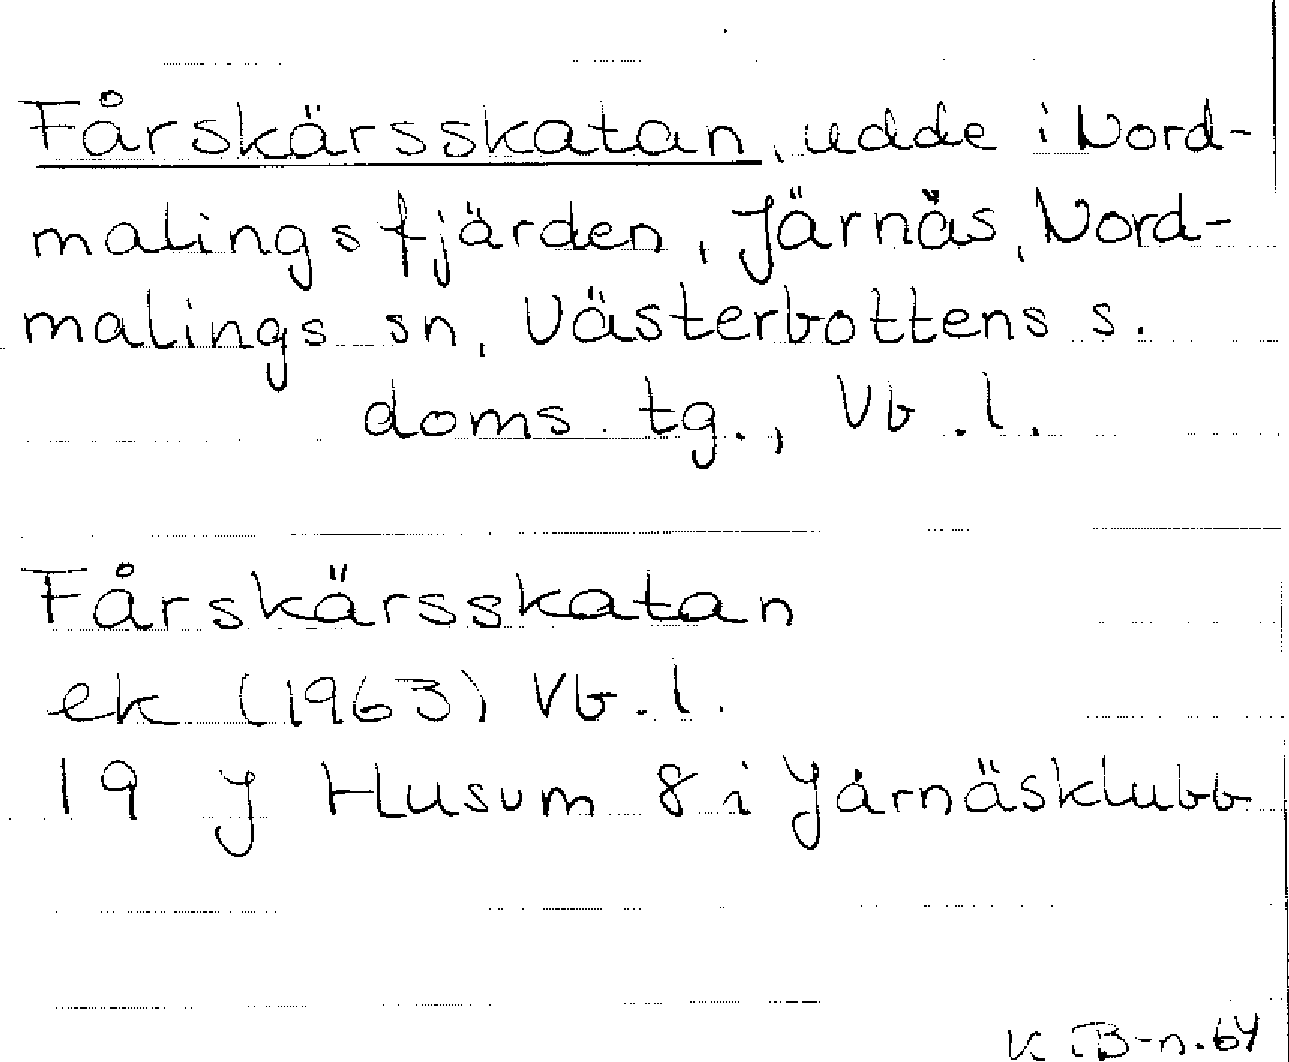 Fårskärsskatan, udde i Nord-
malingsfjärden, Järnäs, Nord-
malings sn, Västerbottens s.
doms. tg., Vb.l.
Fårskärsskatan
ek (1963) Vb.l.
19 J Husum 8 i Järnäsklubb
K B-n.64